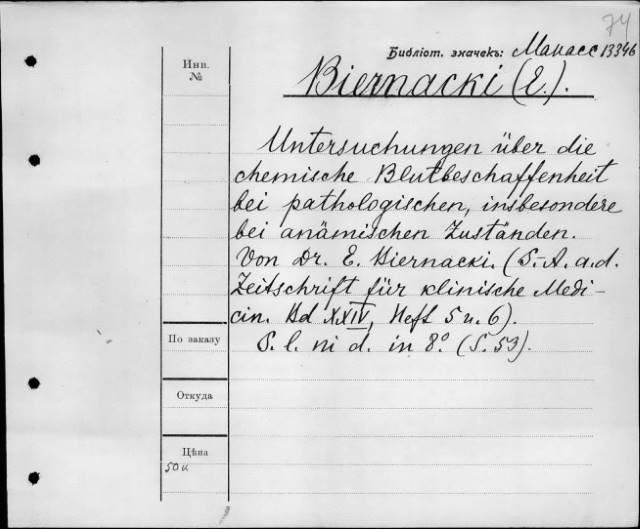 74
Библіот. значекъ: Манасс 13346
Инв.
№
Biernacki (E.).
Untersuchungen über die
chemische Blutbeschaffenheit
bei pathologischen, insbesondere
bei anämischen Zuständen.
Von Dr. E. Biernacki. (S.-A. a. d.
Zeitschrift für klinische Medi-
cin. Bd XXIV, Heft 5 u. 6).
По заказу
S. l. ni d. in 8º. (S. 53).
Откуда
Цѣна
50 к